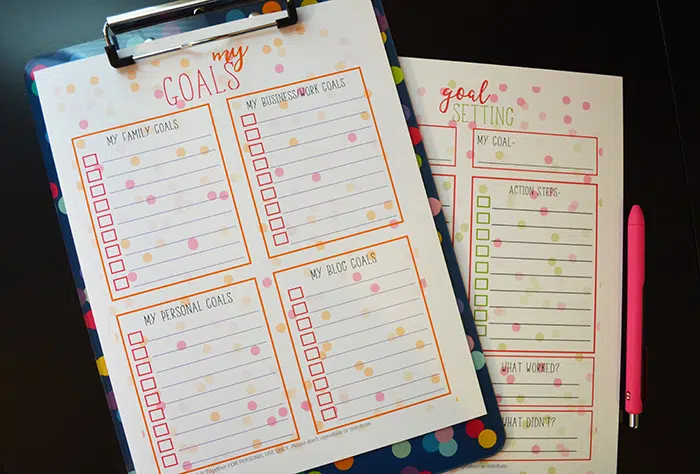 my
GOALS
MY FAMILY GOALS
MY BUSINESS/WORK GOALS
MY PERSONAL GOALS
MY BLOG GOALS
Together FOR PERSONAL USE ONLY. Please don't reproduce or distribute.
goal
SETTING
MY GOAL-
ACTION STEPS-
WHAT WORKED?
WHAT DIDN'T?